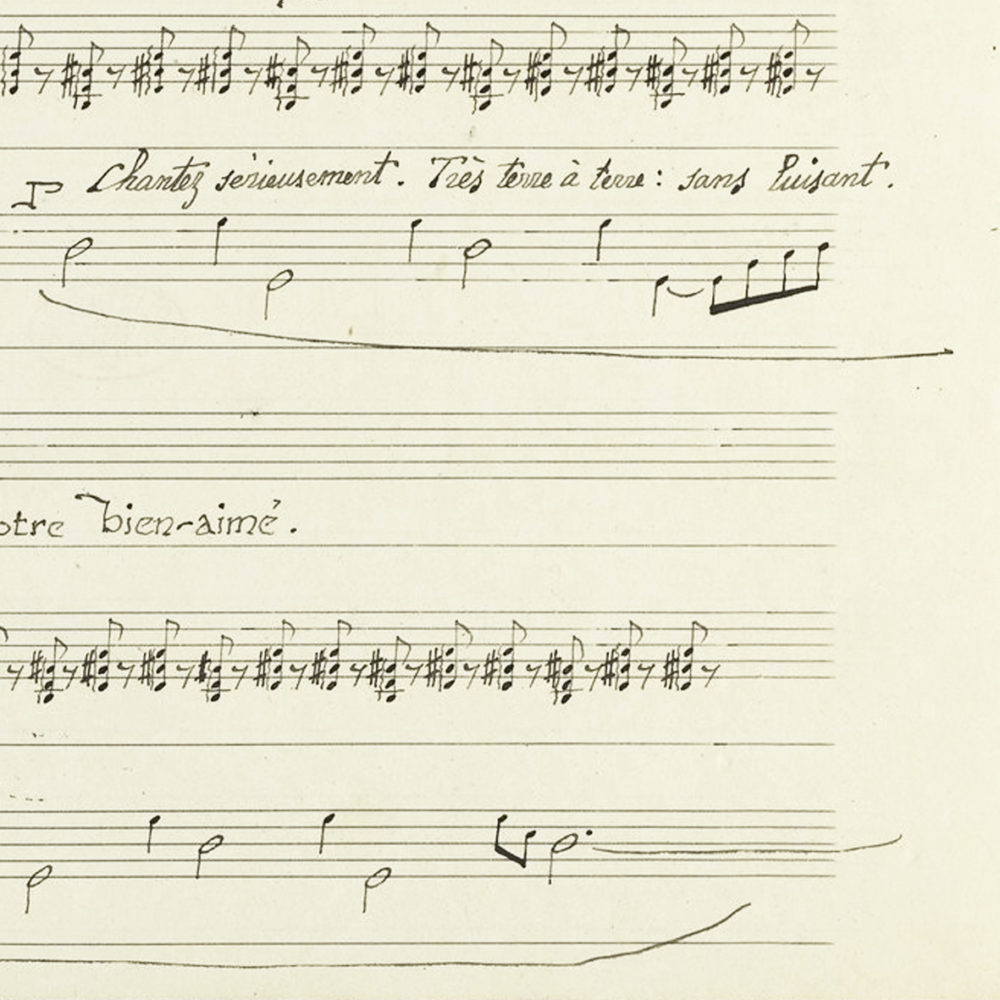 P Chantez sérieusement. Très terre à terre: sans luisant.
otre bien-aimé.